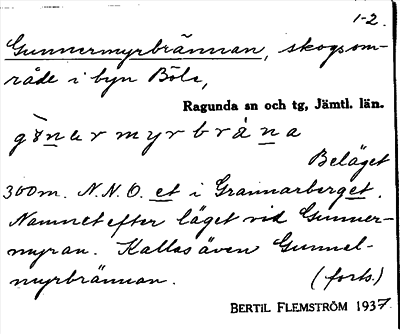 1-2.
Gunnermyrbrännan, skogsom-
råde i byn Böle,
Ragunda sn och tg, Jämtl. län.
Beläget
300 m. N.N.O. et i Grannarberget.
Namnet efter läget vid Gunner-
myran. Kallas även Gunnel-
myrbrännan. (forts.)
BERTIL FLEMSTRÖM 1937